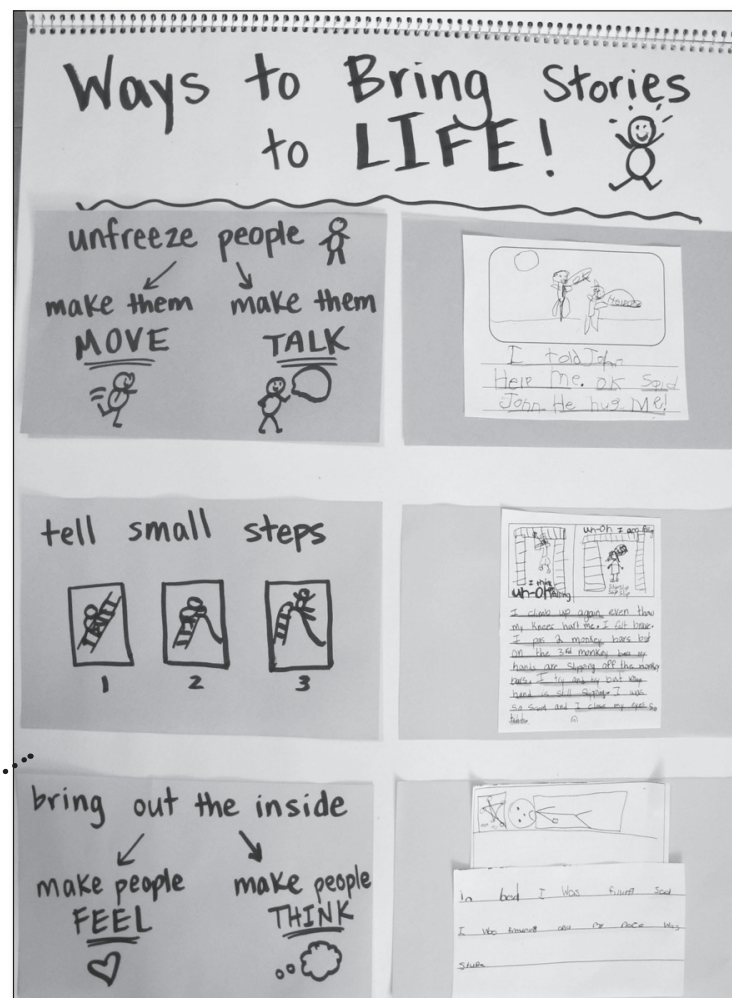 Ways to Bring Stories
to LIFE!
unfreeze people
make them
MOVE
make them
TALK
I told John
Help Me. OK Said
John He hug Me!
tell small steps
1
2
3
uh-oh I
I
uh-oh
I climb up again even thow
my knees hurt me. I felt brave.
I pas 2 monkey bars but
on the 3rd monkey bar my
hands are slipping off the monkey
bars. I try and try but my
hand is still slipping. I was
so and I close my eyes so
bring out the inside
make people
FEEL
make people
THINK
In bed I Was Sad
I Was and my nose Was